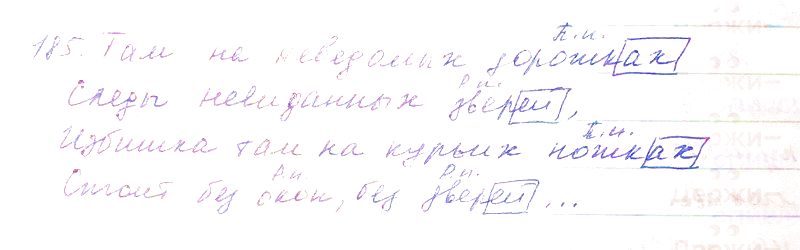 П.п.
185. Там на неведомых дорожках
Р.п.
Следы невиданных зверей,
П.п.
Избушка там на курьих ножках
Р.п. Р.п.
Стоит без окон, без дверей...